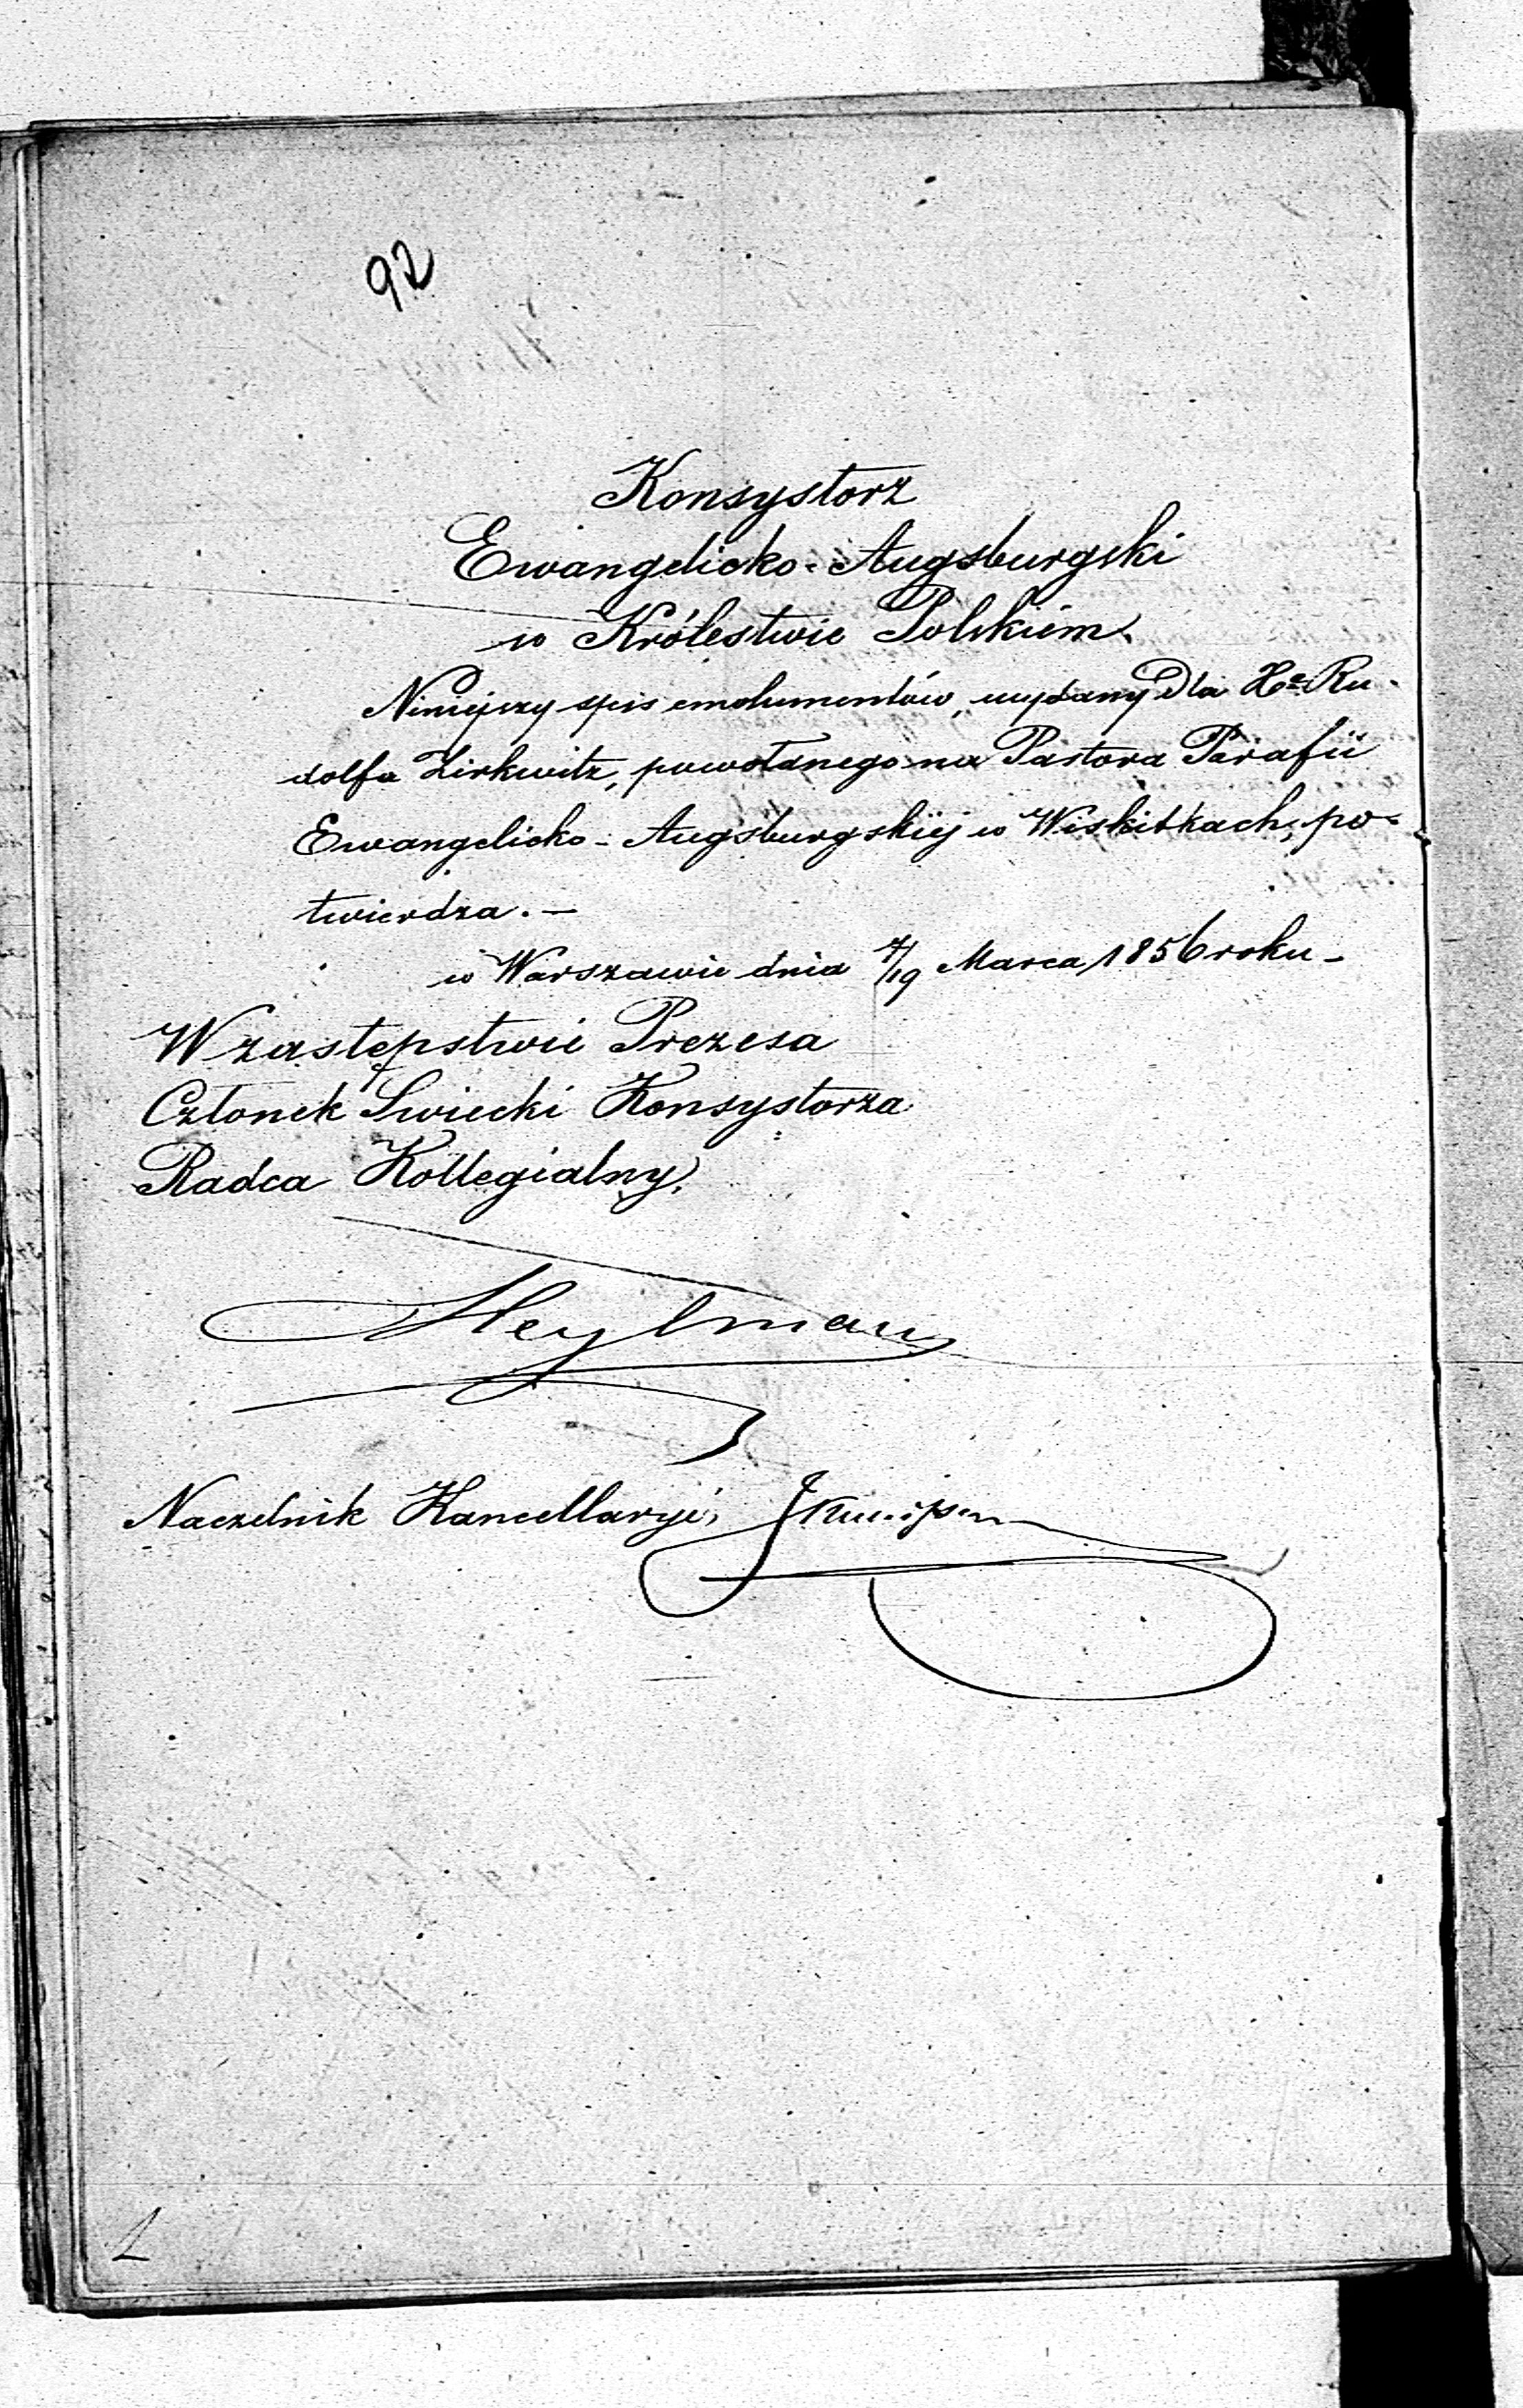 92
Konsystorz
Ewangelicko-Augsburgski
w Królestwie Polskiem.
Niniejszy spis emolumentów, wydany dla Xa Ru-
dolfa Zirkwitz, powołanego na Pastora Parafii
Ewangelicko-Augsburgskiéj w Wiskitkach, po-
twierdza. —
w Warszawie dnia 7/19 Marca 1856 roku -
W zastępstwie Prezesa
Członek Swiecki Konsystorza
Radca Kollegialny,
Heylman
Naczelnik Kancellaryi,